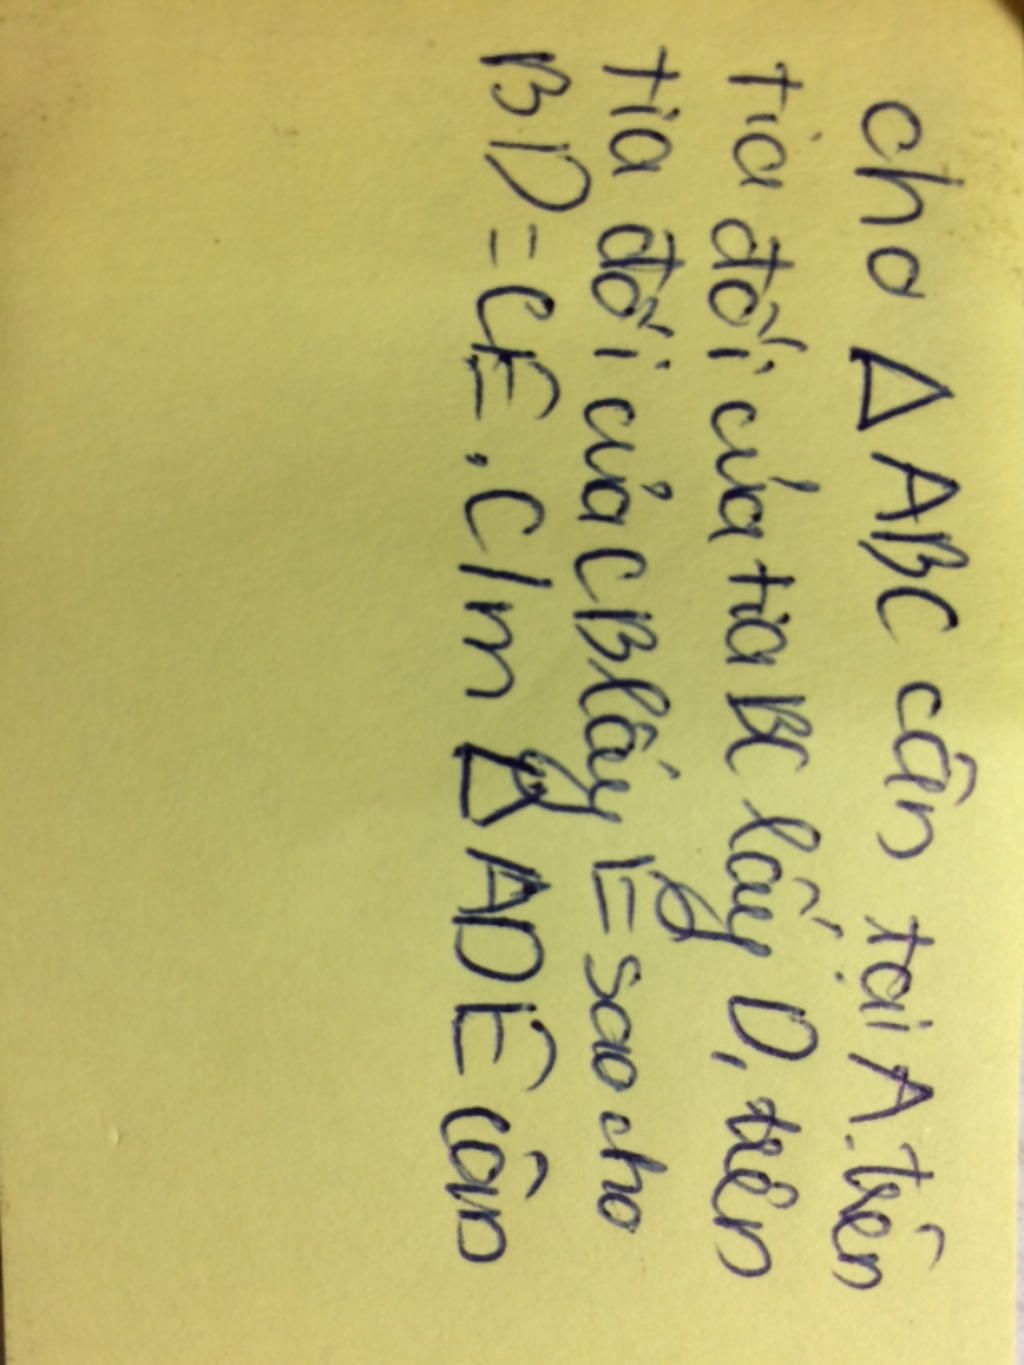 cho Δ ABC cân tại A. trên
tia đối của tia BC lấy D, trên
tia đối của CB lấy E sao cho
BD = CE. C/m Δ ADE cân